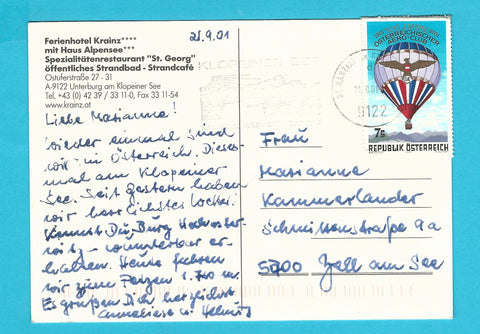 Ferienhotel Krainz****
mit Haus Alpensee***
Spezialitätenrestaurant "St. Georg"
öffentliches Strandbad - Strandcafé
Ostuferstraße 27 - 31
A-9122 Unterburg am Klopeiner See
Tel. +43 (0) 42 39 / 33 11-0, Fax 33 11-54
www.krainz.at
21.9.01
Liebe Marianne!
Wieder einmal sind
wir in Österreich. Dieses-
mal am Klopeiner
See. Seit gestern haben
wir herrlichstes
Kennst Du Burg Hochoster-
witz - wunderbar er-
halten. Heute fuhren
wir zum
Es grüßen Dich herzlichst
Anneliese u. Helmut
KLOPEINER SEE
9122
ÖSTERREICHISCHER
AERO-CLUB
7S
REPUBLIK ÖSTERREICH
Frau
Marianne
Kammerlander
Schmittenstraße 9a
5700 Zell am See